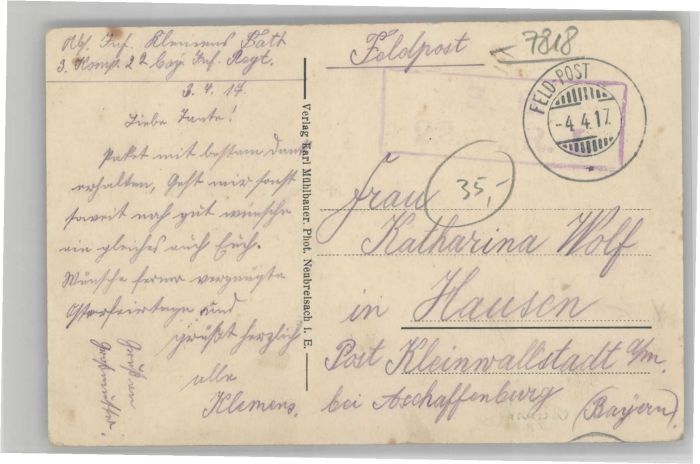 Abs. Inf. Klemens Fath
3. Komp. 22 bay. Inf. Regt.
3.4.17.
Liebe Tante!
Paket mit bestem Dank
erhalten, Geht mir sonst
soweit noch gut wünsche
ein gleiches auch Euch.
Wünsche ferner vergnügte
Osterfeiertage und
grüßt herzlich
alle
Klemens.
Großmutter.
Verlag Karl Mühlbauer, Phot. Neubreisach i. E.
Feldpost
7818
FELD-POST
-4.4.17.
35,-
Frau
Katharina Wolf
in Hausen
Post Kleinwallstadt a/m.
bei Aschaffenburg (Bayern)